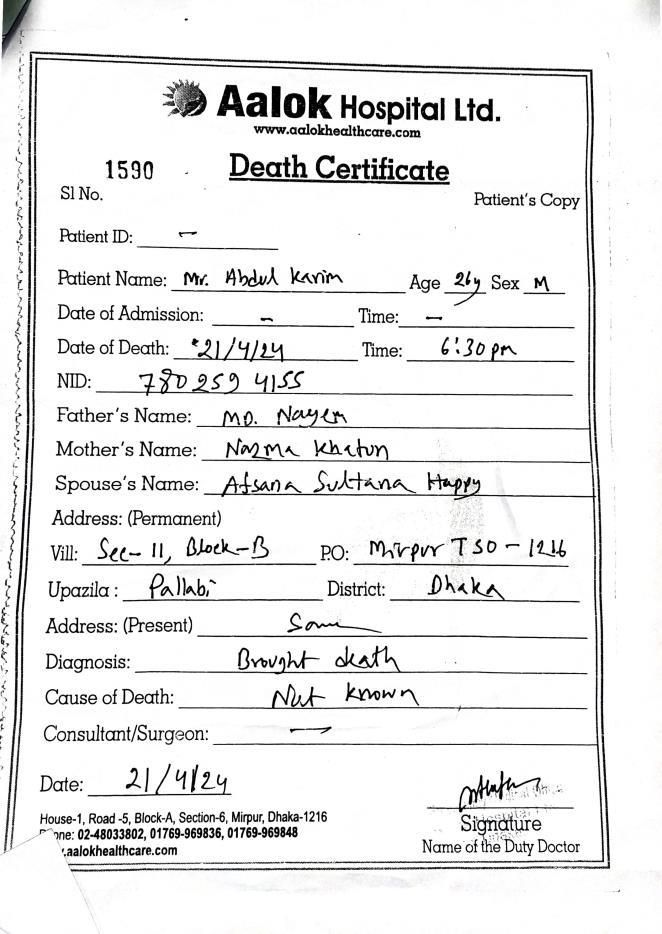 Aalok Hospital Ltd.
www.aalokhealthcare.com
1590 Death Certificate
Sl No. Patient's Copy
Patient ID: –
Patient Name: Mr. Abdul Karim Age 26y Sex M
Date of Admission: – Time: –
Date of Death: 21/4/24 Time: 6:30 pm
NID: 780 259 4155
Father's Name: MD. Nayem
Mother's Name: Nazma Khatun
Spouse's Name: Afsana Sultana Happy
Address: (Permanent)
Vill: Sec- 11, Block-B P.O: Mirpur TSO - 1216
Upazila : Pallabi District: Dhaka
Address: (Present) Same
Diagnosis: Brought death
Cause of Death: Not known
Consultant/Surgeon: –
Date: 21/4/24
House-1, Road -5, Block-A, Section-6, Mirpur, Dhaka-1216
Signature
Phone: 02-48033802, 01769-969836, 01769-969848
Name of the Duty Doctor
.aalokhealthcare.com